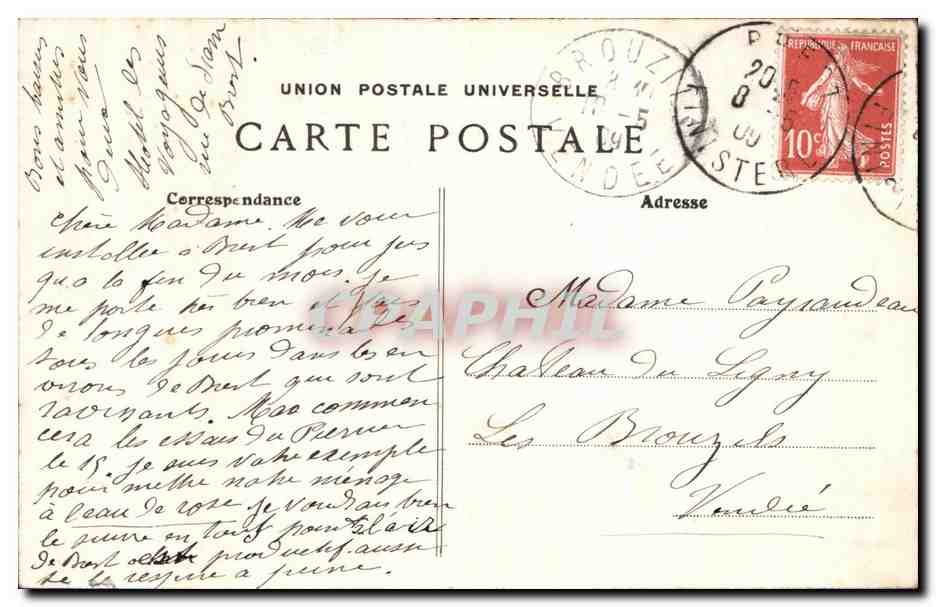 UNION POSTALE UNIVERSELLE
CARTE POSTALE
Correspondance
Adresse
Chère Madame. Me voici
installée à Brest pour jus
qu'à la fin du mois. Je
me porte très bien et fais
de longues promenades
tous les jours dans les en
virons de Brest qui sont
ravissants. Max commen
cera les essais du
le 15. Je suis votre exemple
pour mettre notre ménage
à l'eau de rose je voudrais bien
le suivre en tout point l'air
de Brest est productif aussi
je le respire à peine.
Bons baisers
et amitiés
pour vous
deux
Hotel des
Voyageurs
rue de Siam
Brest.
Madame Paysaudeau
Chateau du Ligny
Les Brouzils
Vendée
BROUZI
VENDEE
BREST
20
8
09
FINISTERE
REPUBLIQUE FRANÇAISE
10c
POSTES
CPAPHIL